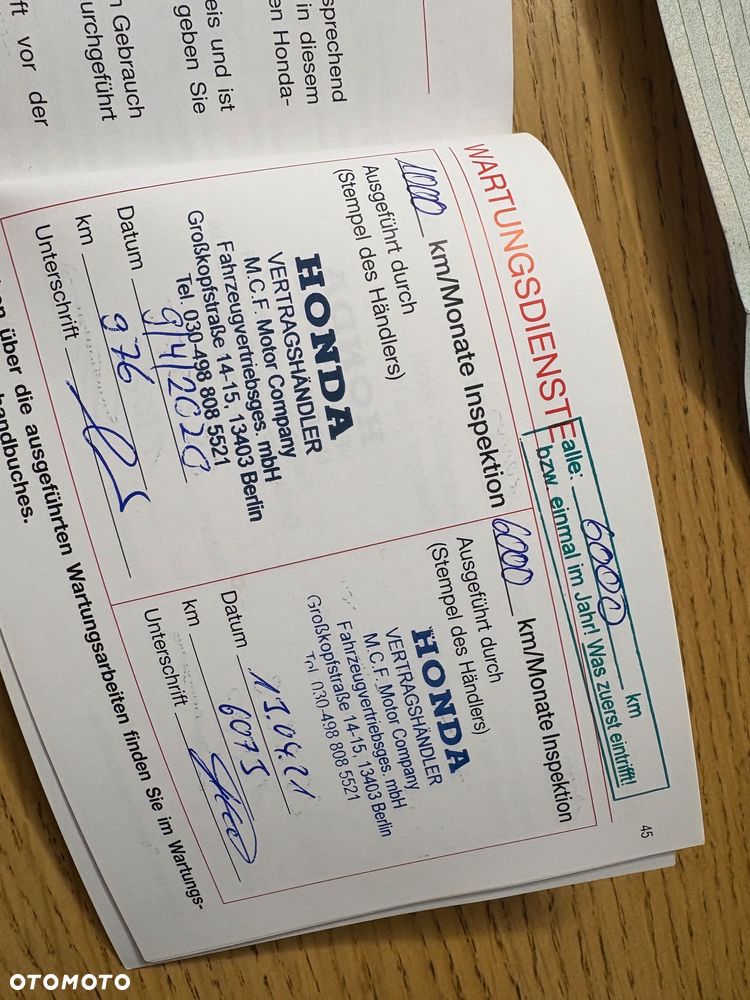 sprechend
in diesem
en Honda-
eis und ist
geben Sie
n Gebrauch
urchgeführt
ft vor der
WARTUNGSDIENSTE
alle: 6000 km
bzw. einmal im Jahr! Was zuerst eintrifft!
45
1000 km/Monate Inspektion
Ausgeführt durch
(Stempel des Händlers)
HONDA
VERTRAGSHÄNDLER
M.C.F. Motor Company
Fahrzeugvertriebsges. mbH
Großkopfstraße 14-15, 13403 Berlin
Tel. 030-498 808 5521
Datum 9/4/2020
km 976
Unterschrift
6000 km/Monate Inspektion
Ausgeführt durch
(Stempel des Händlers)
HONDA
VERTRAGSHÄNDLER
M.C.F. Motor Company
Fahrzeugvertriebsges. mbH
Großkopfstraße 14-15, 13403 Berlin
Tel. 030-498 808 5521
Datum 19.04.21
km 6075
Unterschrift
en über die ausgeführten Wartungsarbeiten finden Sie im Wartungs-
handbuches.
OTOMOTO